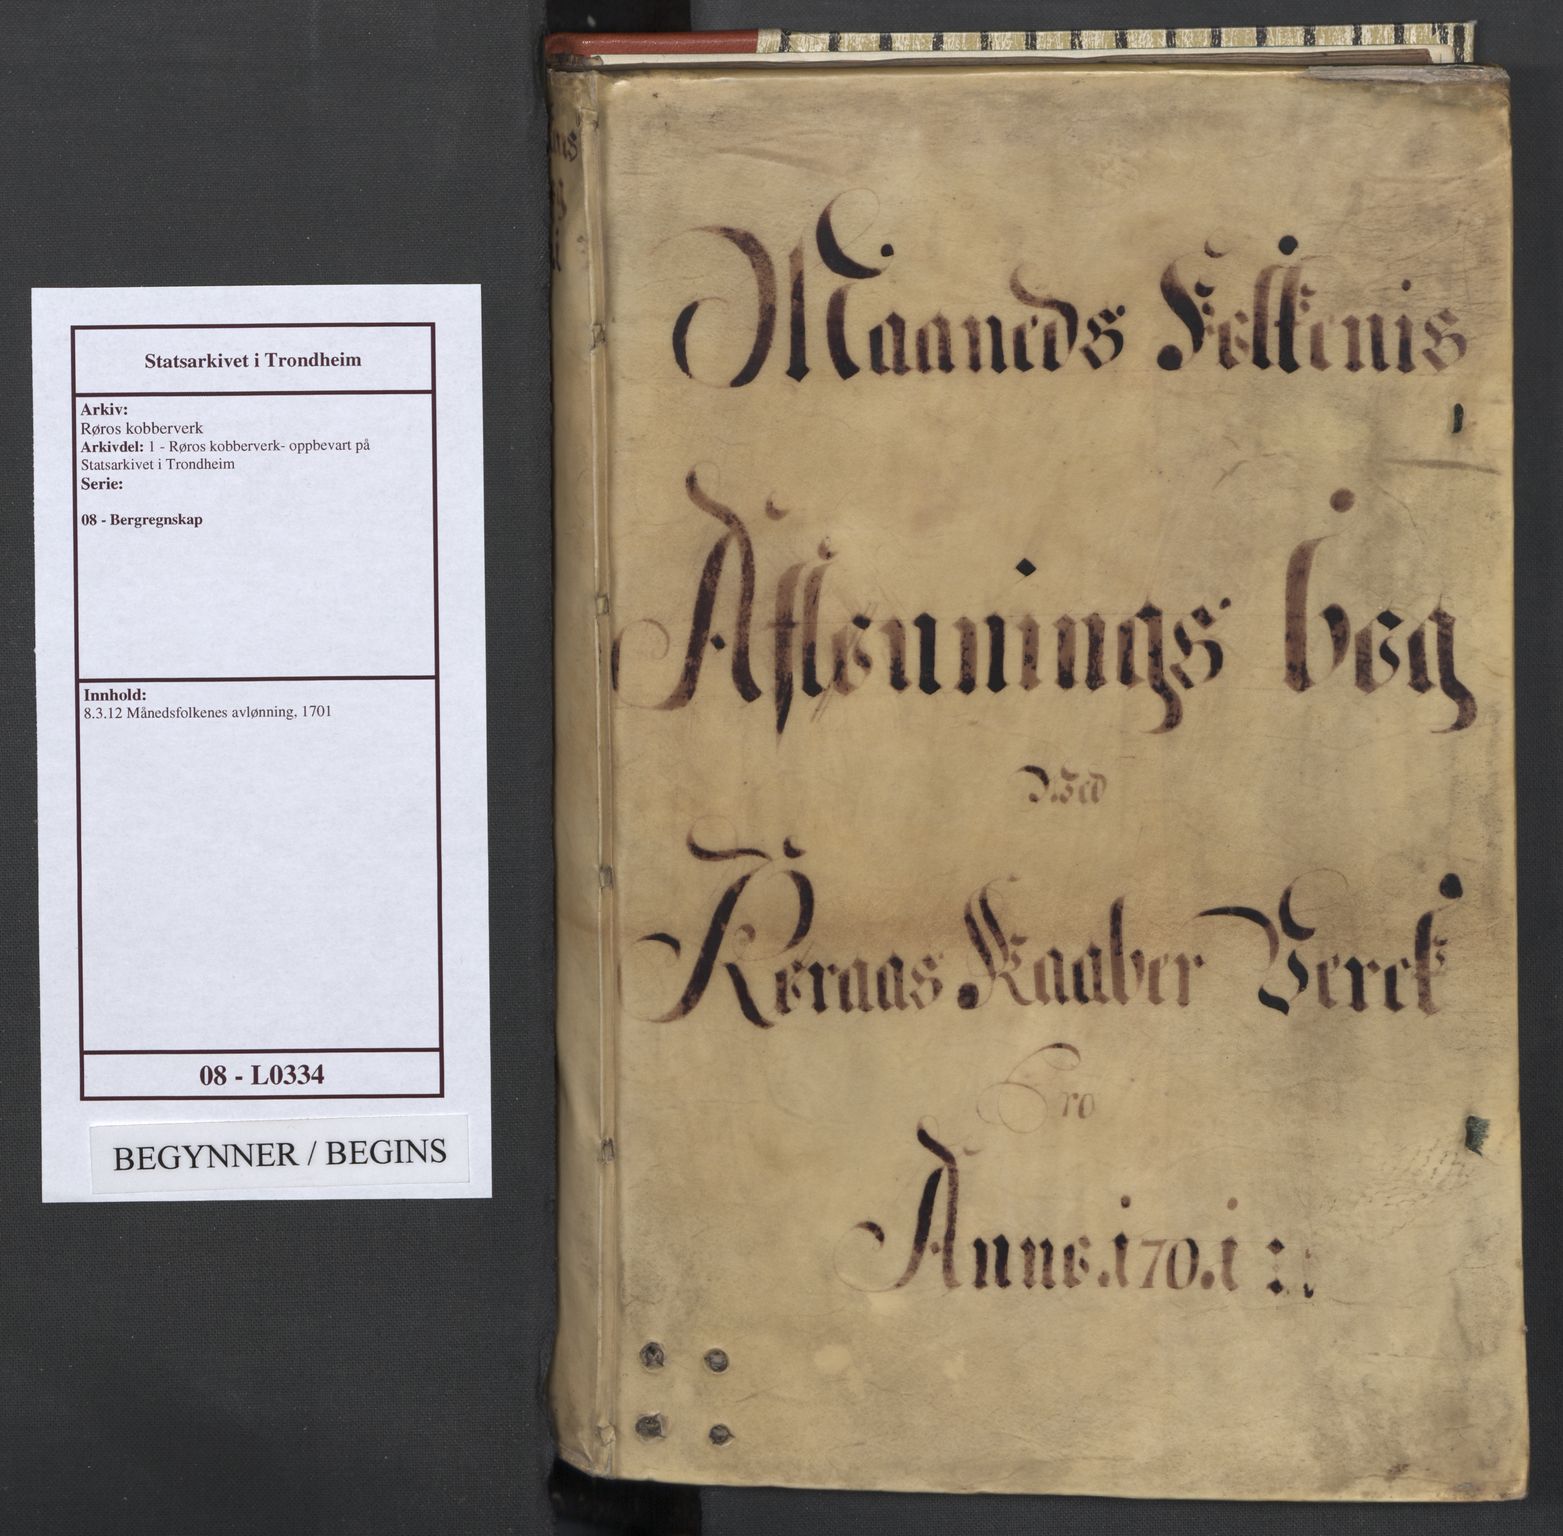 Statsarkivet i Trondheim
Arkiv:
Røros kobberverk
Arkivdel: 1 - Røros kobberverk- oppbevart på
Statsarkivet i Trondheim
Serie:
08 - Bergregnskap
Innhold:
8.3.12 Månedsfolkenes avlønning, 1701
08 - L0334
BEGYNNER / BEGINS
Maaneds Folkenis
Aflønnings bog
Wed
Røraas Kaaber Verck
Pro
Anno .1701